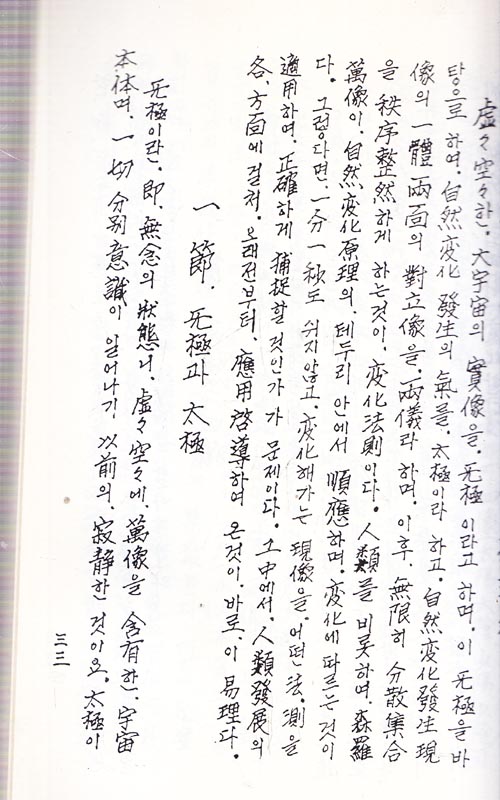 虛々空々한. 大宇宙의 實像을. 无極이라고 하며. 이 无極을 바
탕으로 하여. 自然変化 發生의 氣를. 太極이라 하고. 自然変化發生現
像의 一體兩面의 對立像을. 兩儀라 하며. 이후. 無限히 分散集合
을 秩序整然하게 하는것이. 変化法則이다. 人類를 비롯하여. 森羅
萬像이. 自然変化原理의. 테두리 안에서 順應하며. 変化에 따르는것이
다. 그렇다면. 一分一秒도 쉬지않고. 変化해가는 現像을. 어떤 法.測을
適用하여. 正確하게 捕捉할 것인가가 문제이다. 그中에서. 人類發展의
各.方面에 걸쳐. 오래전부터. 應用啓導하여 온것이. 바로. 이 易理다.
一節. 无極과 太極
无極이란. 即. 無念의 狀態니. 虛々空々에. 萬像을 含有한. 宇宙
本体며. 一切 分別意識이 일어나기 以前의. 寂静한 것이요. 太極이
三三